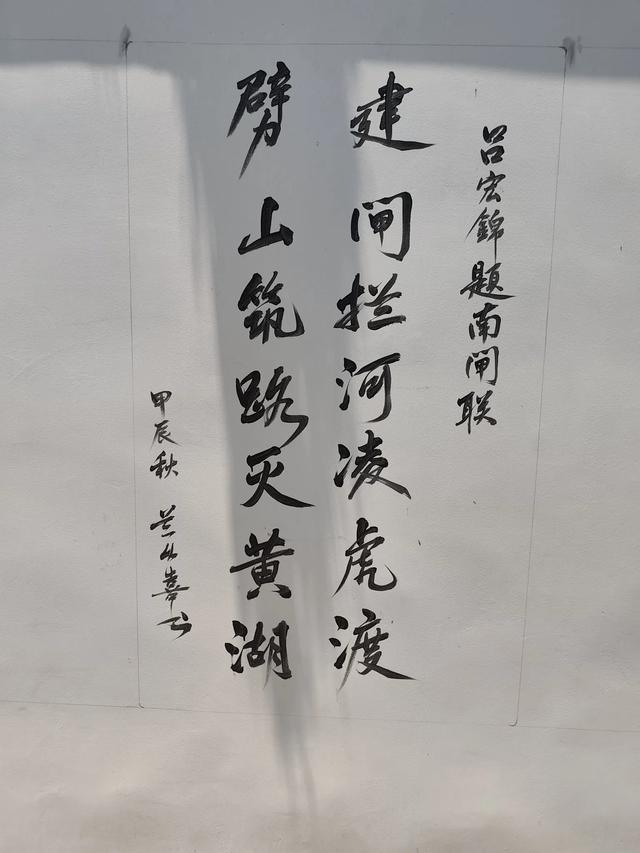 吕宏錦题南闸联
建闸拦河凌虎渡
劈山筑路灭黄湖
甲辰秋